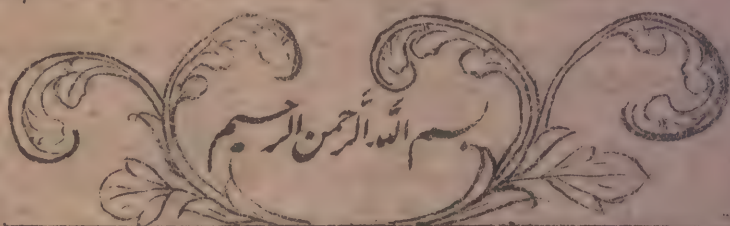 بسم اللہ الرَّحمن الرحیم